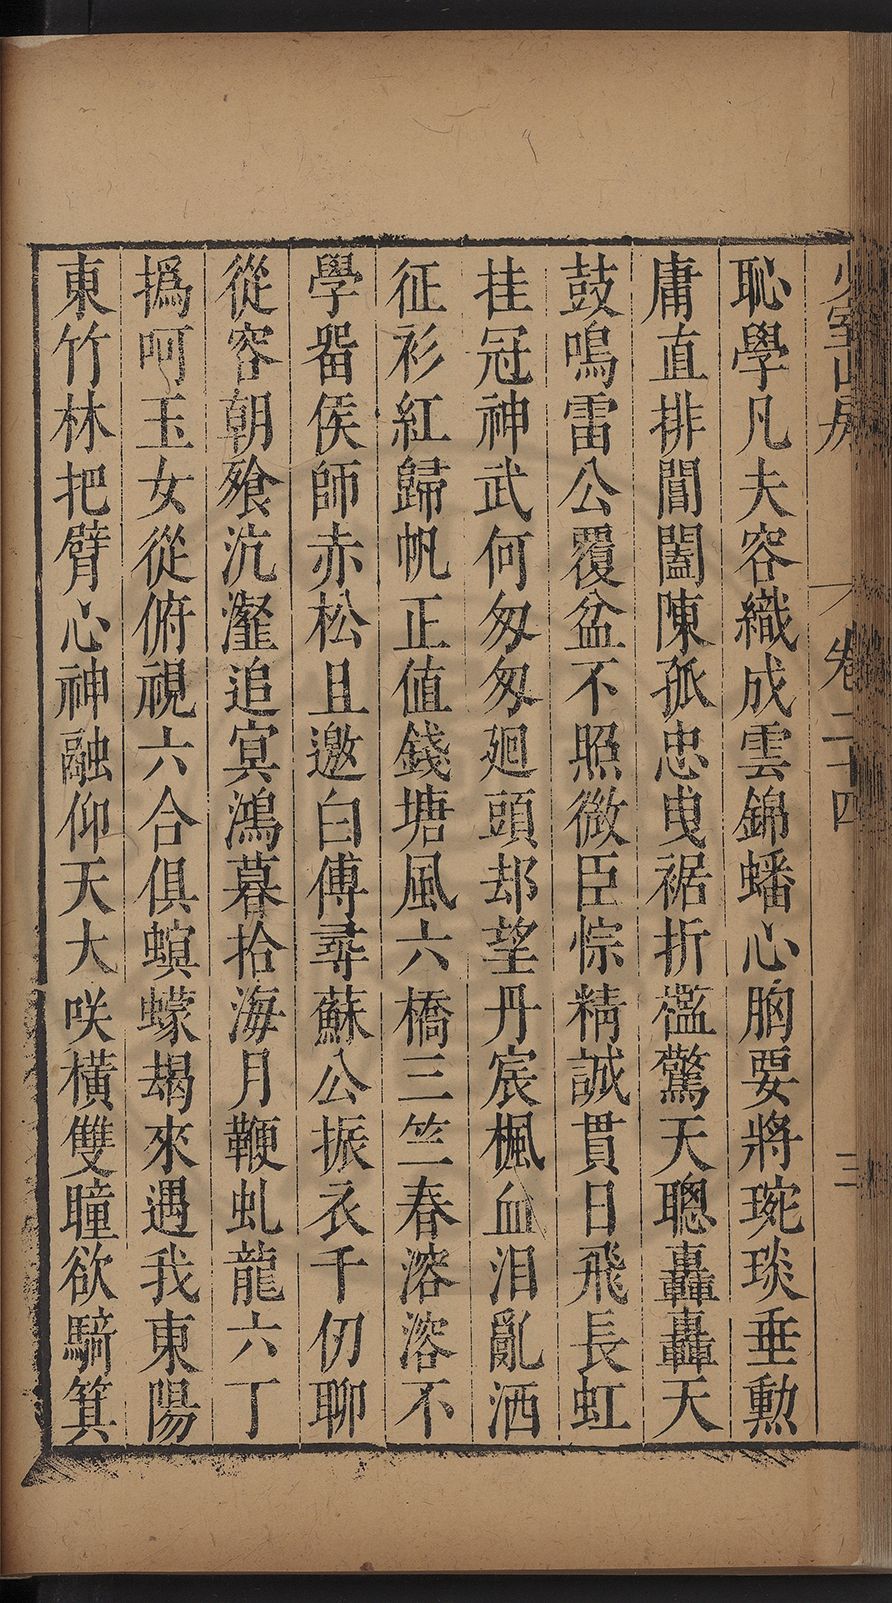 少室山房
卷二十四
三
恥學凡夫容織成雲錦蟠心胸要將琬琰垂勲
庸直排閶闔陳孤忠曳裾折檻驚天聰轟轟天
鼓鳴雷公覆盆不照微臣悰精誠貫日飛長虹
挂冠神武何匆匆廻頭却望丹宸楓血泪亂洒
征衫紅歸帆正值錢塘風六橋三竺春溶溶不
學畱侯師赤松且邀白傅尋蘇公振衣千仞聊
從容朝飱沆瀣追冥鴻暮拾海月鞭虬龍六丁
撝呵玉女從俯視六合俱螟蠓朅來遇我東陽
東竹林把臂心神融仰天大咲橫雙瞳欲騎箕